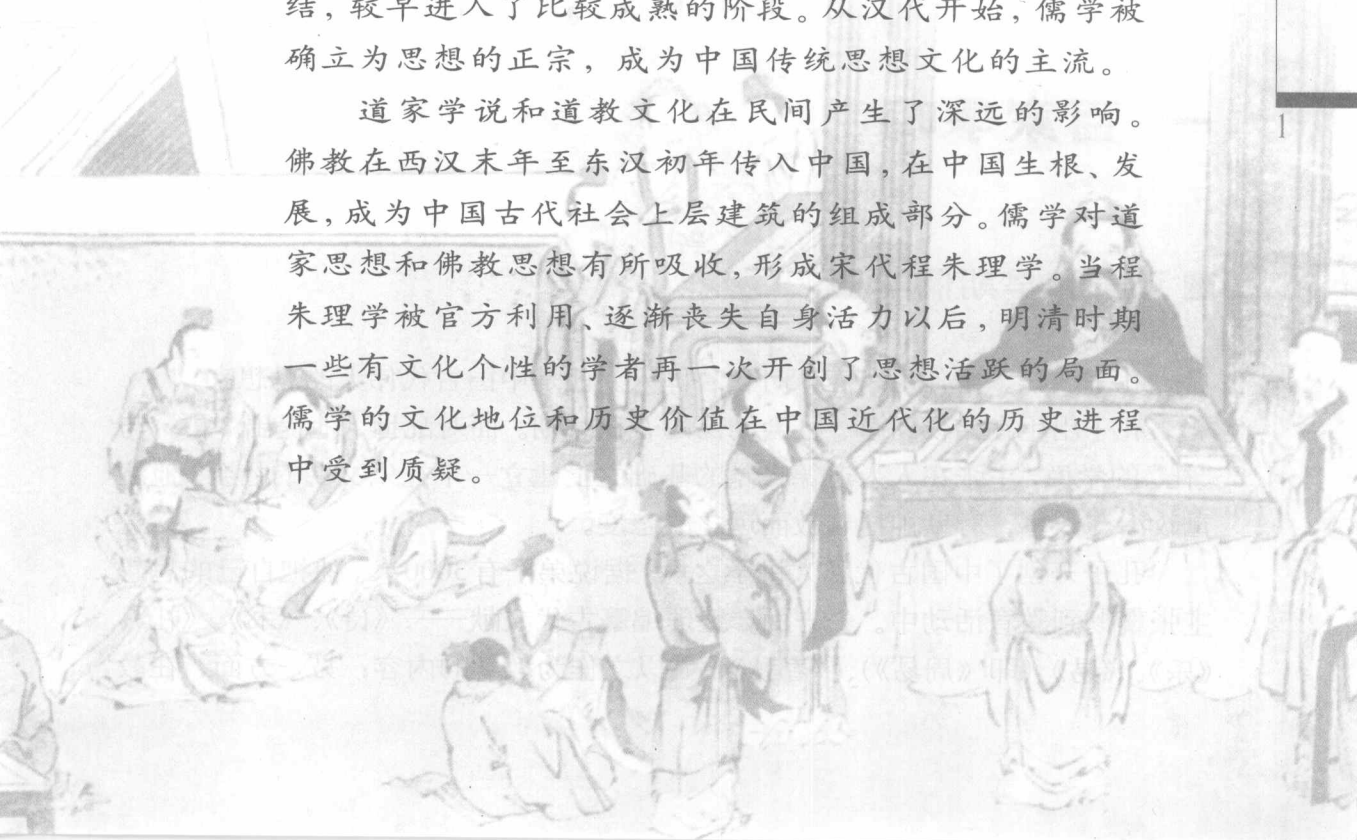 结，较早进入了比较成熟的阶段。从汉代开始，儒学被
确立为思想的正宗，成为中国传统思想文化的主流。
道家学说和道教文化在民间产生了深远的影响。
佛教在西汉末年至东汉初年传入中国，在中国生根、发
展，成为中国古代社会上层建筑的组成部分。儒学对道
家思想和佛教思想有所吸收，形成宋代程朱理学。当程
朱理学被官方利用、逐渐丧失自身活力以后，明清时期
一些有文化个性的学者再一次开创了思想活跃的局面。
儒学的文化地位和历史价值在中国近代化的历史进程
中受到质疑。
1